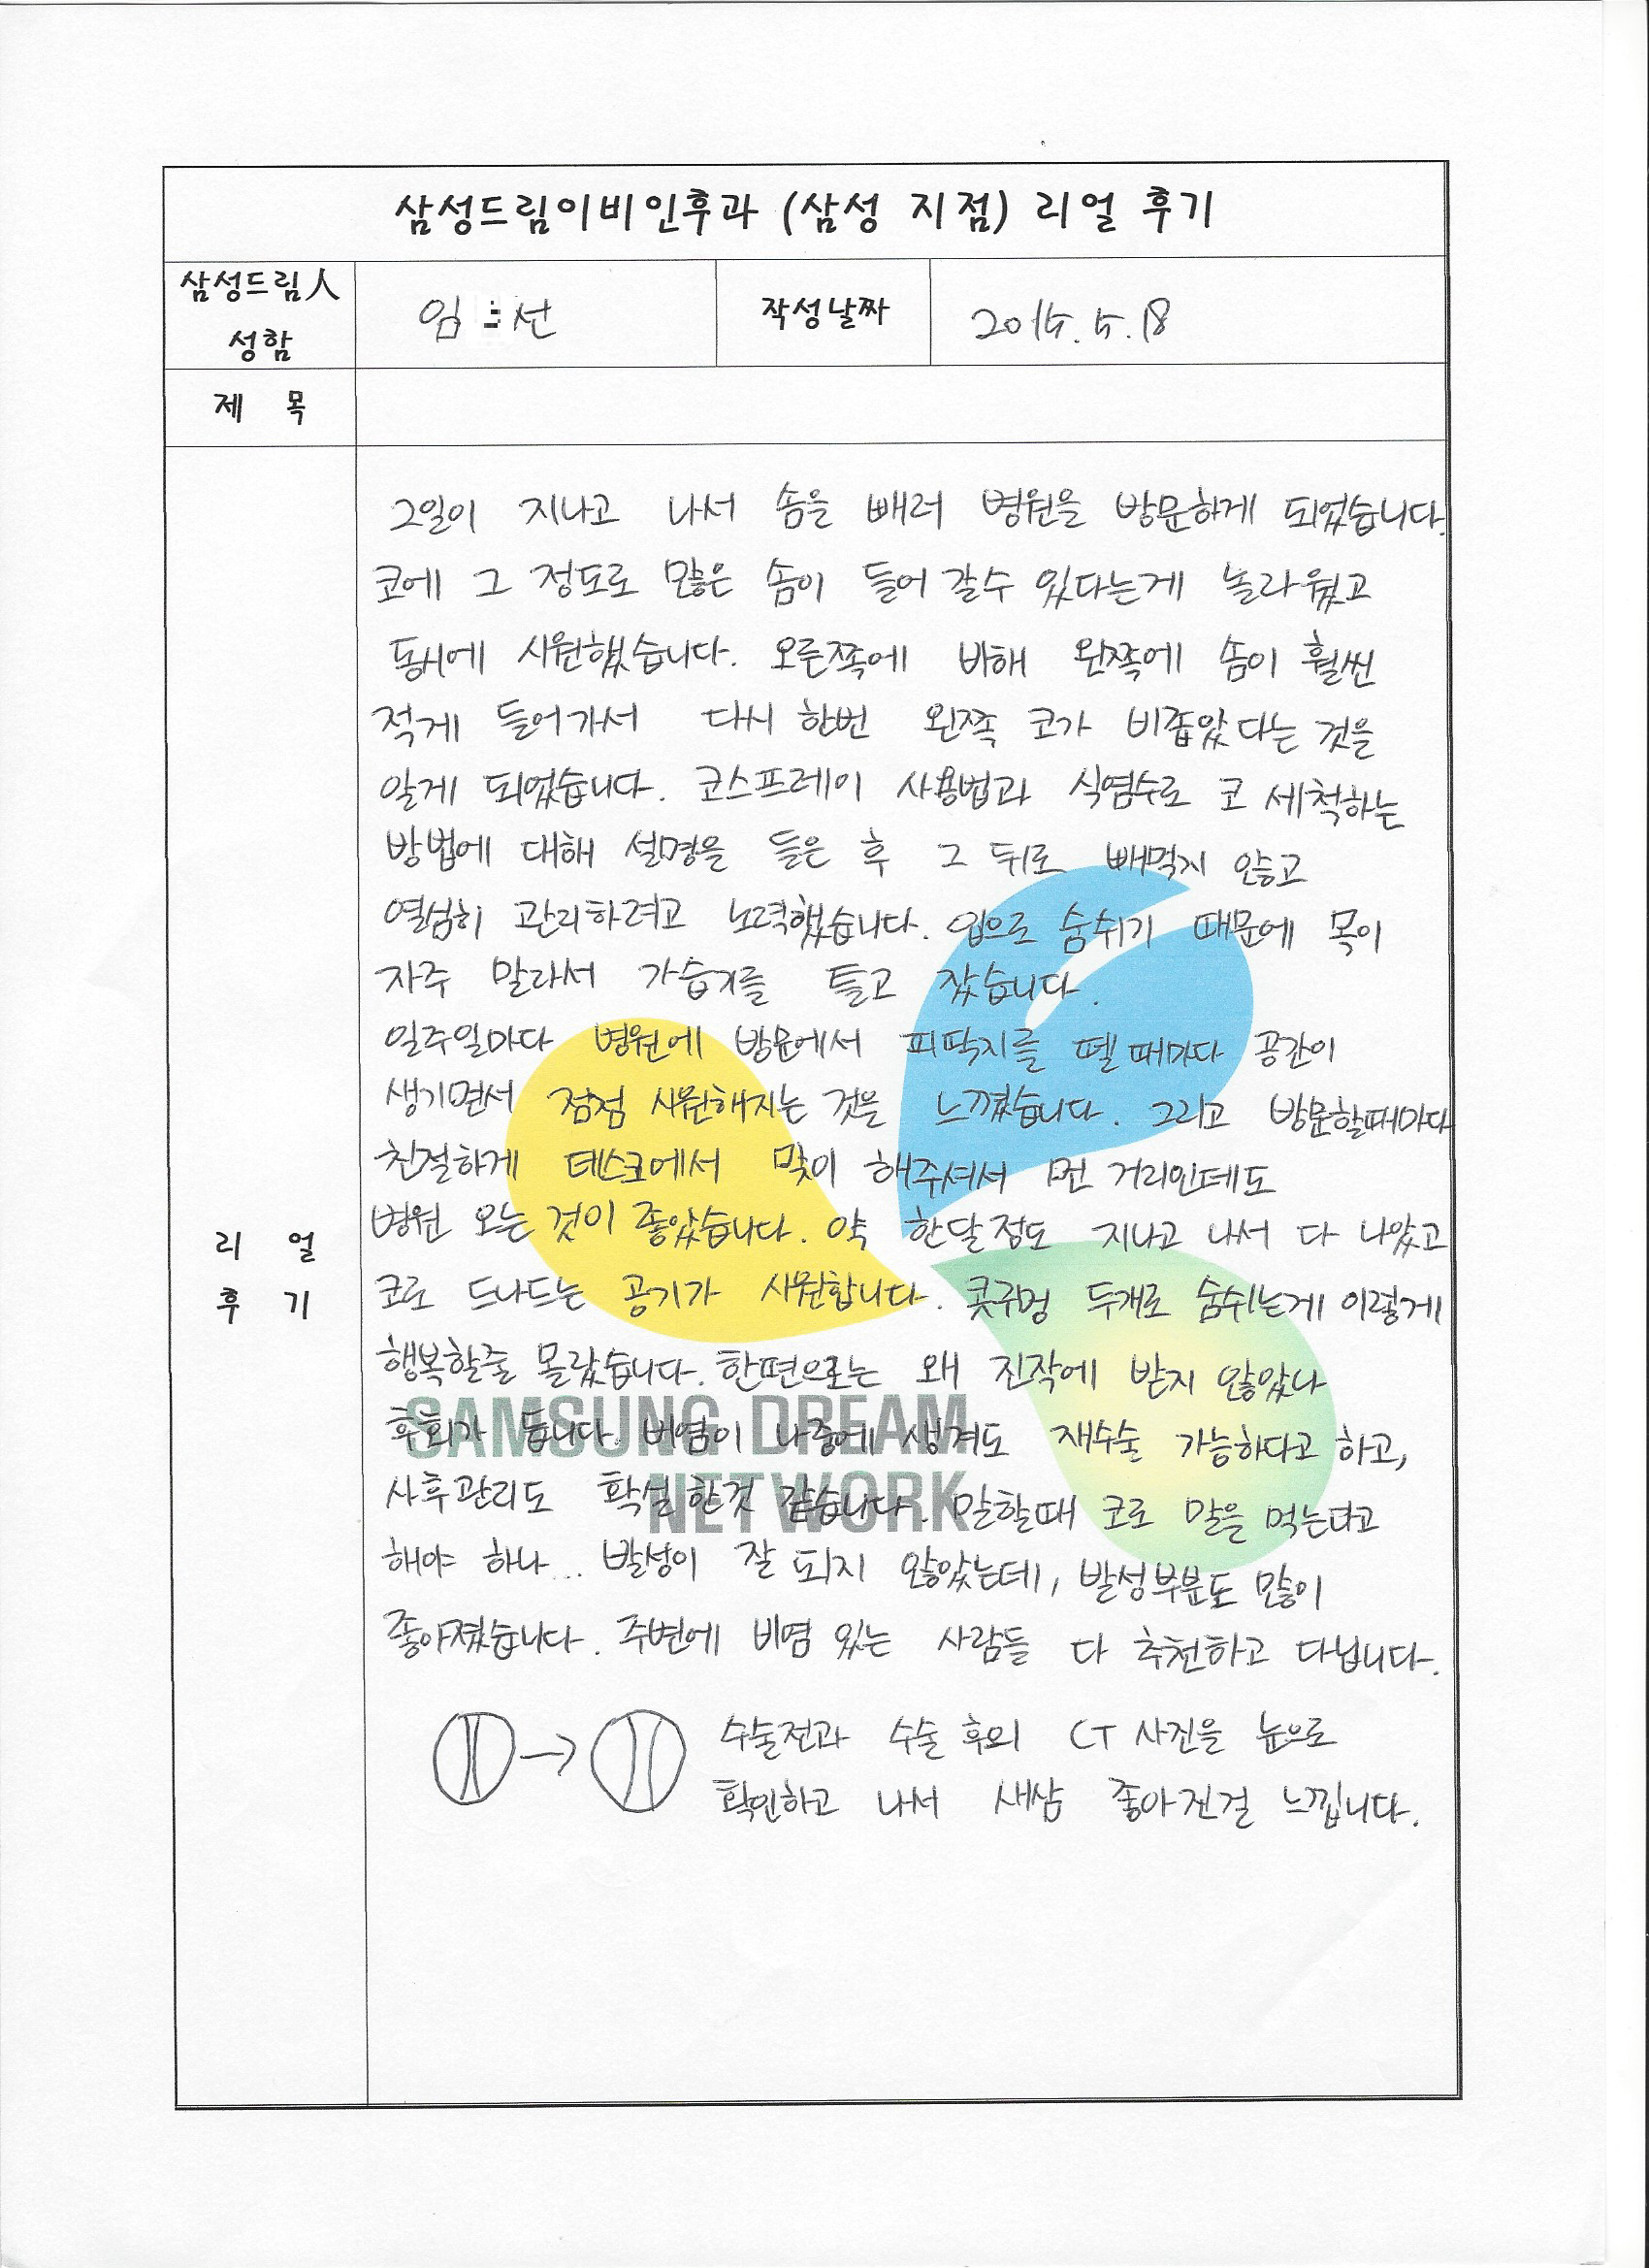 삼성드림이비인후과 (삼성 지점) 리얼 후기
삼성드림人
성함
임 선
작성날짜
2015.5.18
제 목
리 얼
후 기
2일이 지나고 나서 솜을 빼러 병원을 방문하게 되었습니다.
코에 그 정도로 많은 솜이 들어 갈수 있다는게 놀라웠고
동시에 시원했습니다. 오른쪽에 비해 왼쪽에 솜이 훨씬
적게 들어가서 다시 한번 왼쪽 코가 비좁았다는 것을
알게 되었습니다. 코스프레이 사용법과 식염수로 코 세척하는
방법에 대해 설명을 들은 후 그 뒤로 빼먹지 않고
열심히 관리하려고 노력했습니다. 입으로 숨쉬기 때문에 목이
자주 말라서 가습기를 틀고 잤습니다.
일주일마다 병원에 방문에서 피딱지를 뗄 때마다 공간이
생기면서 점점 시원해지는 것을 느꼈습니다. 그리고 방문할때마다
친절하게 데스크에서 맞이 해주셔서 먼 거리인데도
병원 오는 것이 좋았습니다. 약 한달 정도 지나고 나서 다 나았고
코로 드나드는 공기가 시원합니다. 콧구멍 두개로 숨쉬는게 이렇게
행복할줄 몰랐습니다. 한편으로는 왜 진작에 받지 않았나
후회가 듭니다. 비염이 나중에 생겨도 재수술 가능하다고 하고,
사후관리도 확실한것 같습니다. 말할때 코로 말을 먹는다고
해야 하나... 발성이 잘 되지 않았는데, 발성부분도 많이
좋아졌습니다. 주변에 비염 있는 사람들 다 추천하고 다닙니다.
수술전과 수술 후의 CT 사진을 눈으로
확인하고 나서 새삼 좋아진걸 느낍니다.
SAMSUNG DREAM
NETWORK